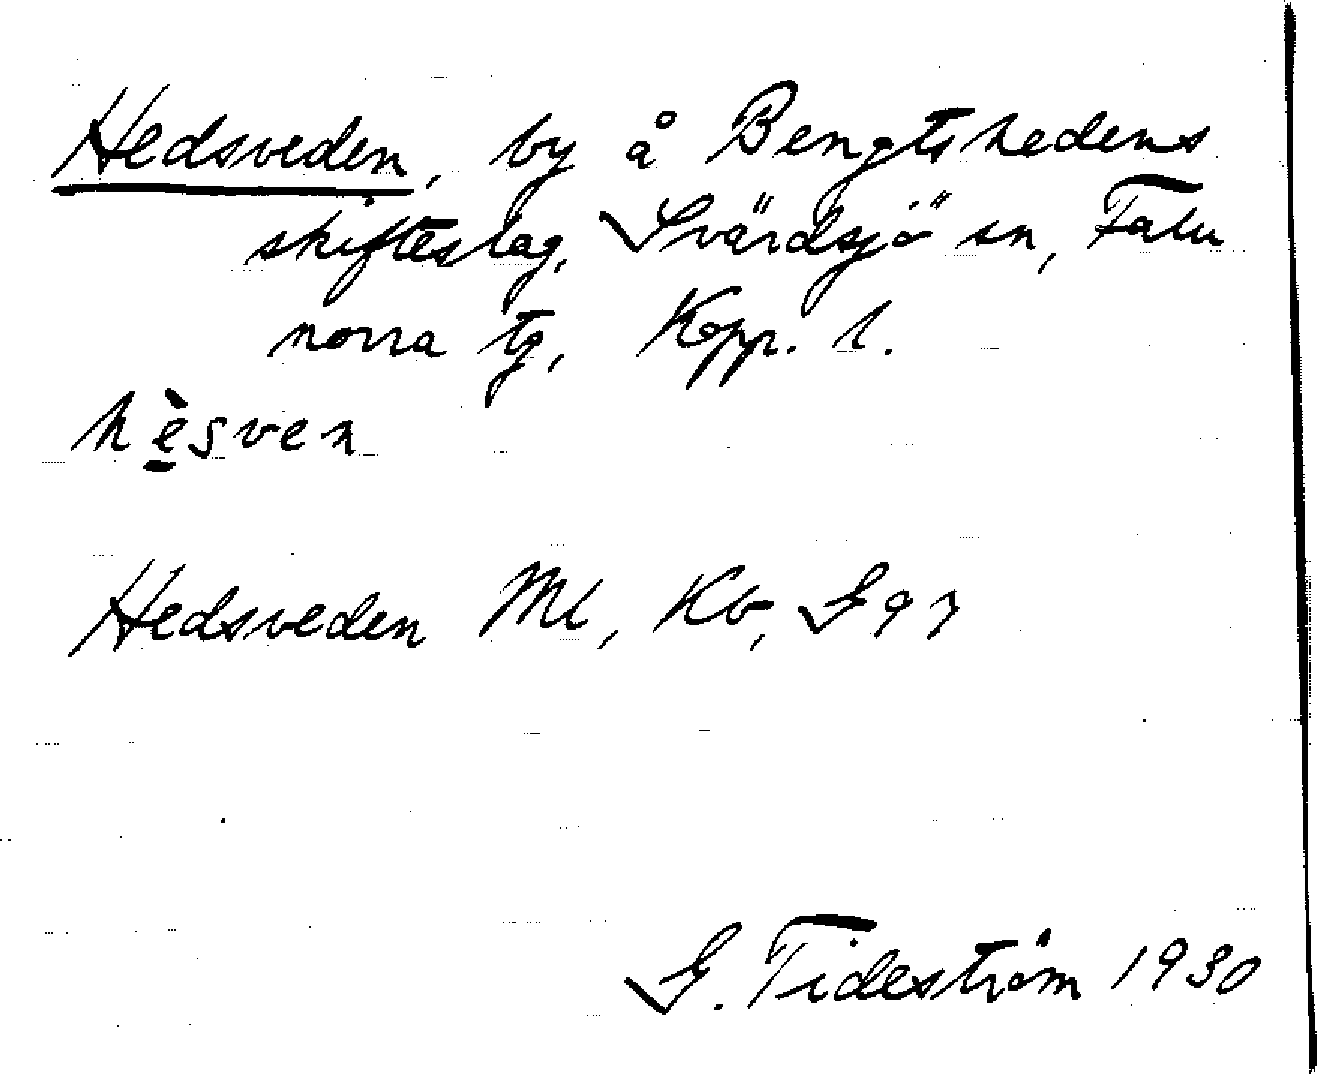 Hedsveden, by å Bengtshedens
skifteslag, Svärdsjö sn, Falu
norra tg, Kopp. l.
hèsven
Hedsveden Ml, Kb, G 97
G. Tideström 1930